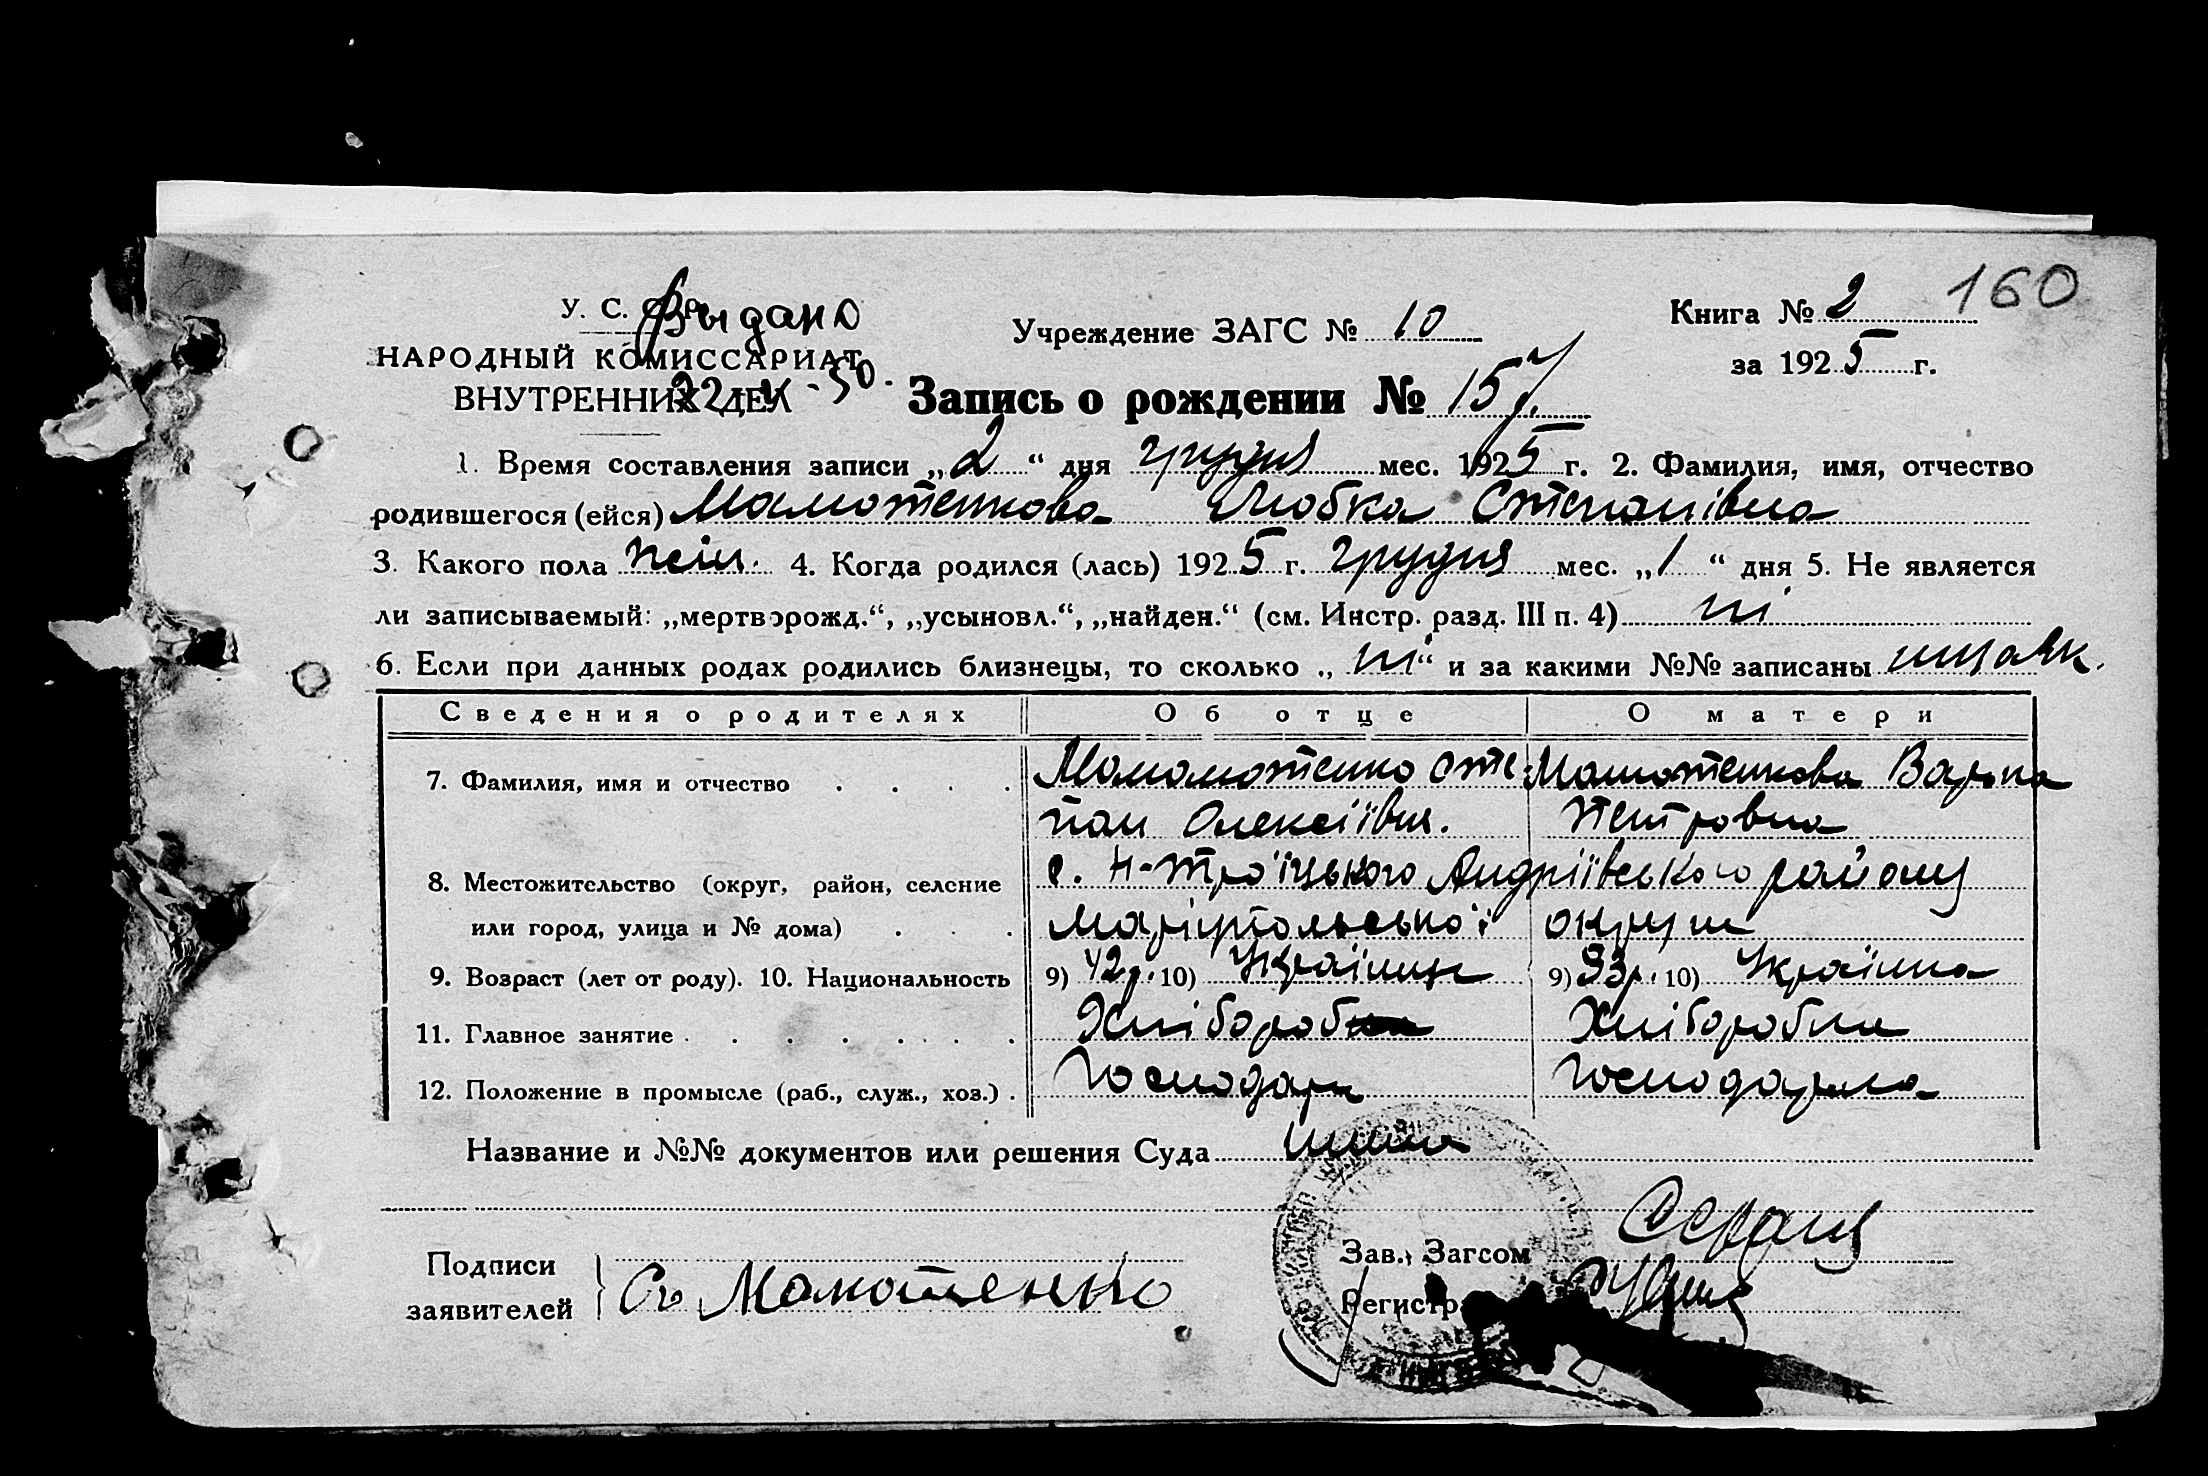 160
У. С. С. Р.
Выдано
НАРОДНЫЙ КОМИССАРИАТ
ВНУТРЕННИХ ДЕЛ
22 - 50.
Учреждение ЗАГС № 10
Книга № 2
за 1925 г.
Запись о рождении № 157.
1. Время составления записи „2“ дня грудня мес. 1925 г. 2. Фамилия, имя, отчество
родившегося (ейся) Мамотенкова Любка Степанівна
3. Какого пола жін. 4. Когда родился (лась) 1925 г. грудня мес. „1“ дня 5. Не является
ли записываемый: „мертворожд.“, „усыновл.“, „найден.“ (см. Инстр. разд. III п. 4) ні
6. Если при данных родах родились близнецы, то сколько „ні“ и за какими №№ записаны
Сведения о родителях Об отце О матери
7. Фамилия, имя и отчество . . . . Сте- Мамотенкова Варька
пан Олексіївич. Петровна
8. Местожительство (округ, район, селение с. Н-Троїцького Андріївського району
или город, улица и № дома) . . . Маріупольської округи
9. Возраст (лет от роду). 10. Национальность 9) 42р. 10) Українец 9) 33р. 10) Українка
11. Главное занятие . . . . . . . Хлібороб Хліборобка
12. Положение в промысле (раб., служ., хоз.) . Господарь Господарка
Название и №№ документов или решения Суда
Подписи
заявителей
Мамотенко
Зав. Загсом
Регистр